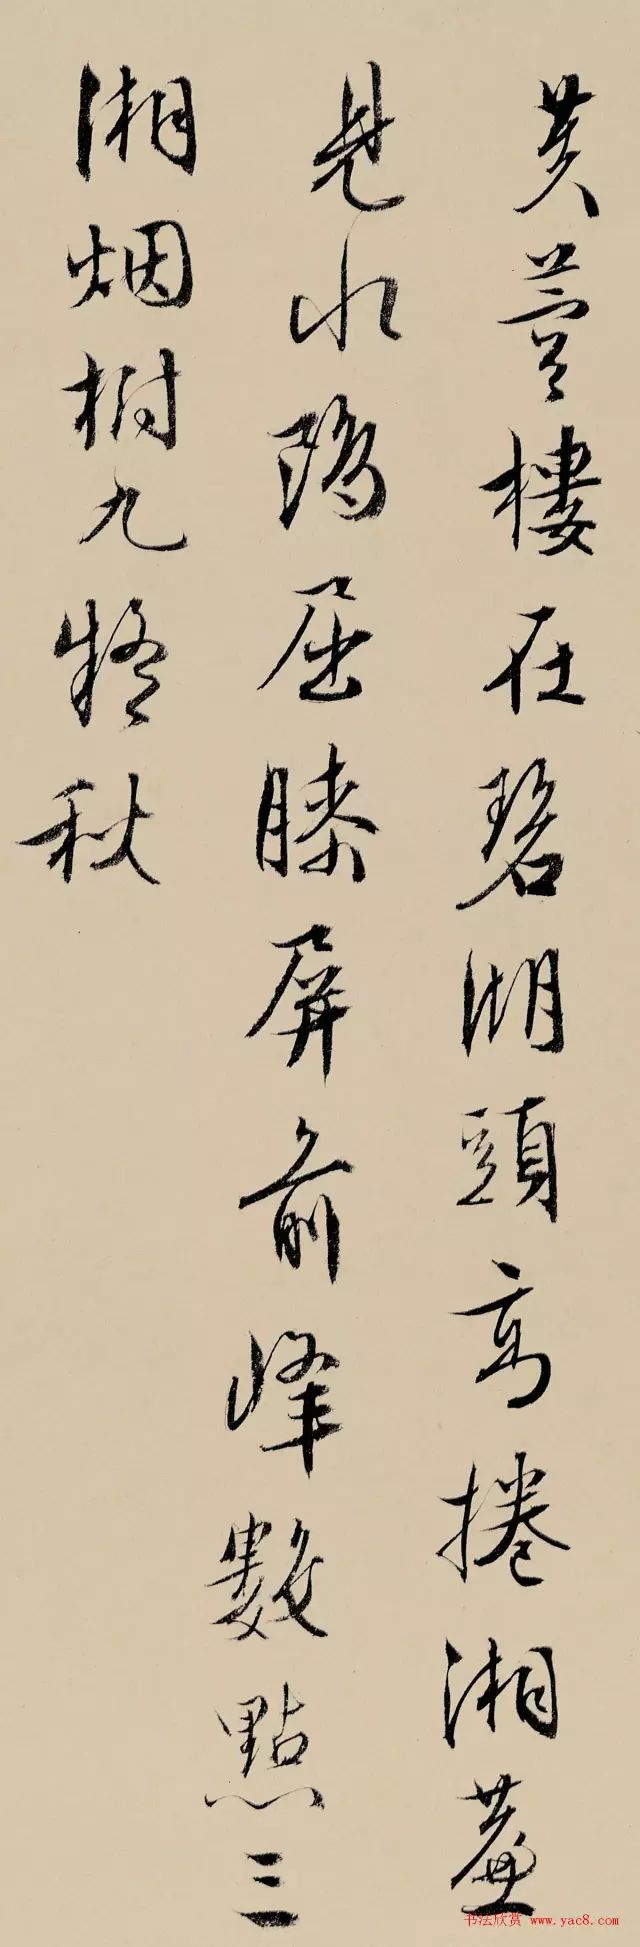 芙蓉樓在碧湖頭高捲湘簾
見水鷗屈膝屏前峰數點三
湘烟樹九疑秋
书法欣赏 www.yac8.com